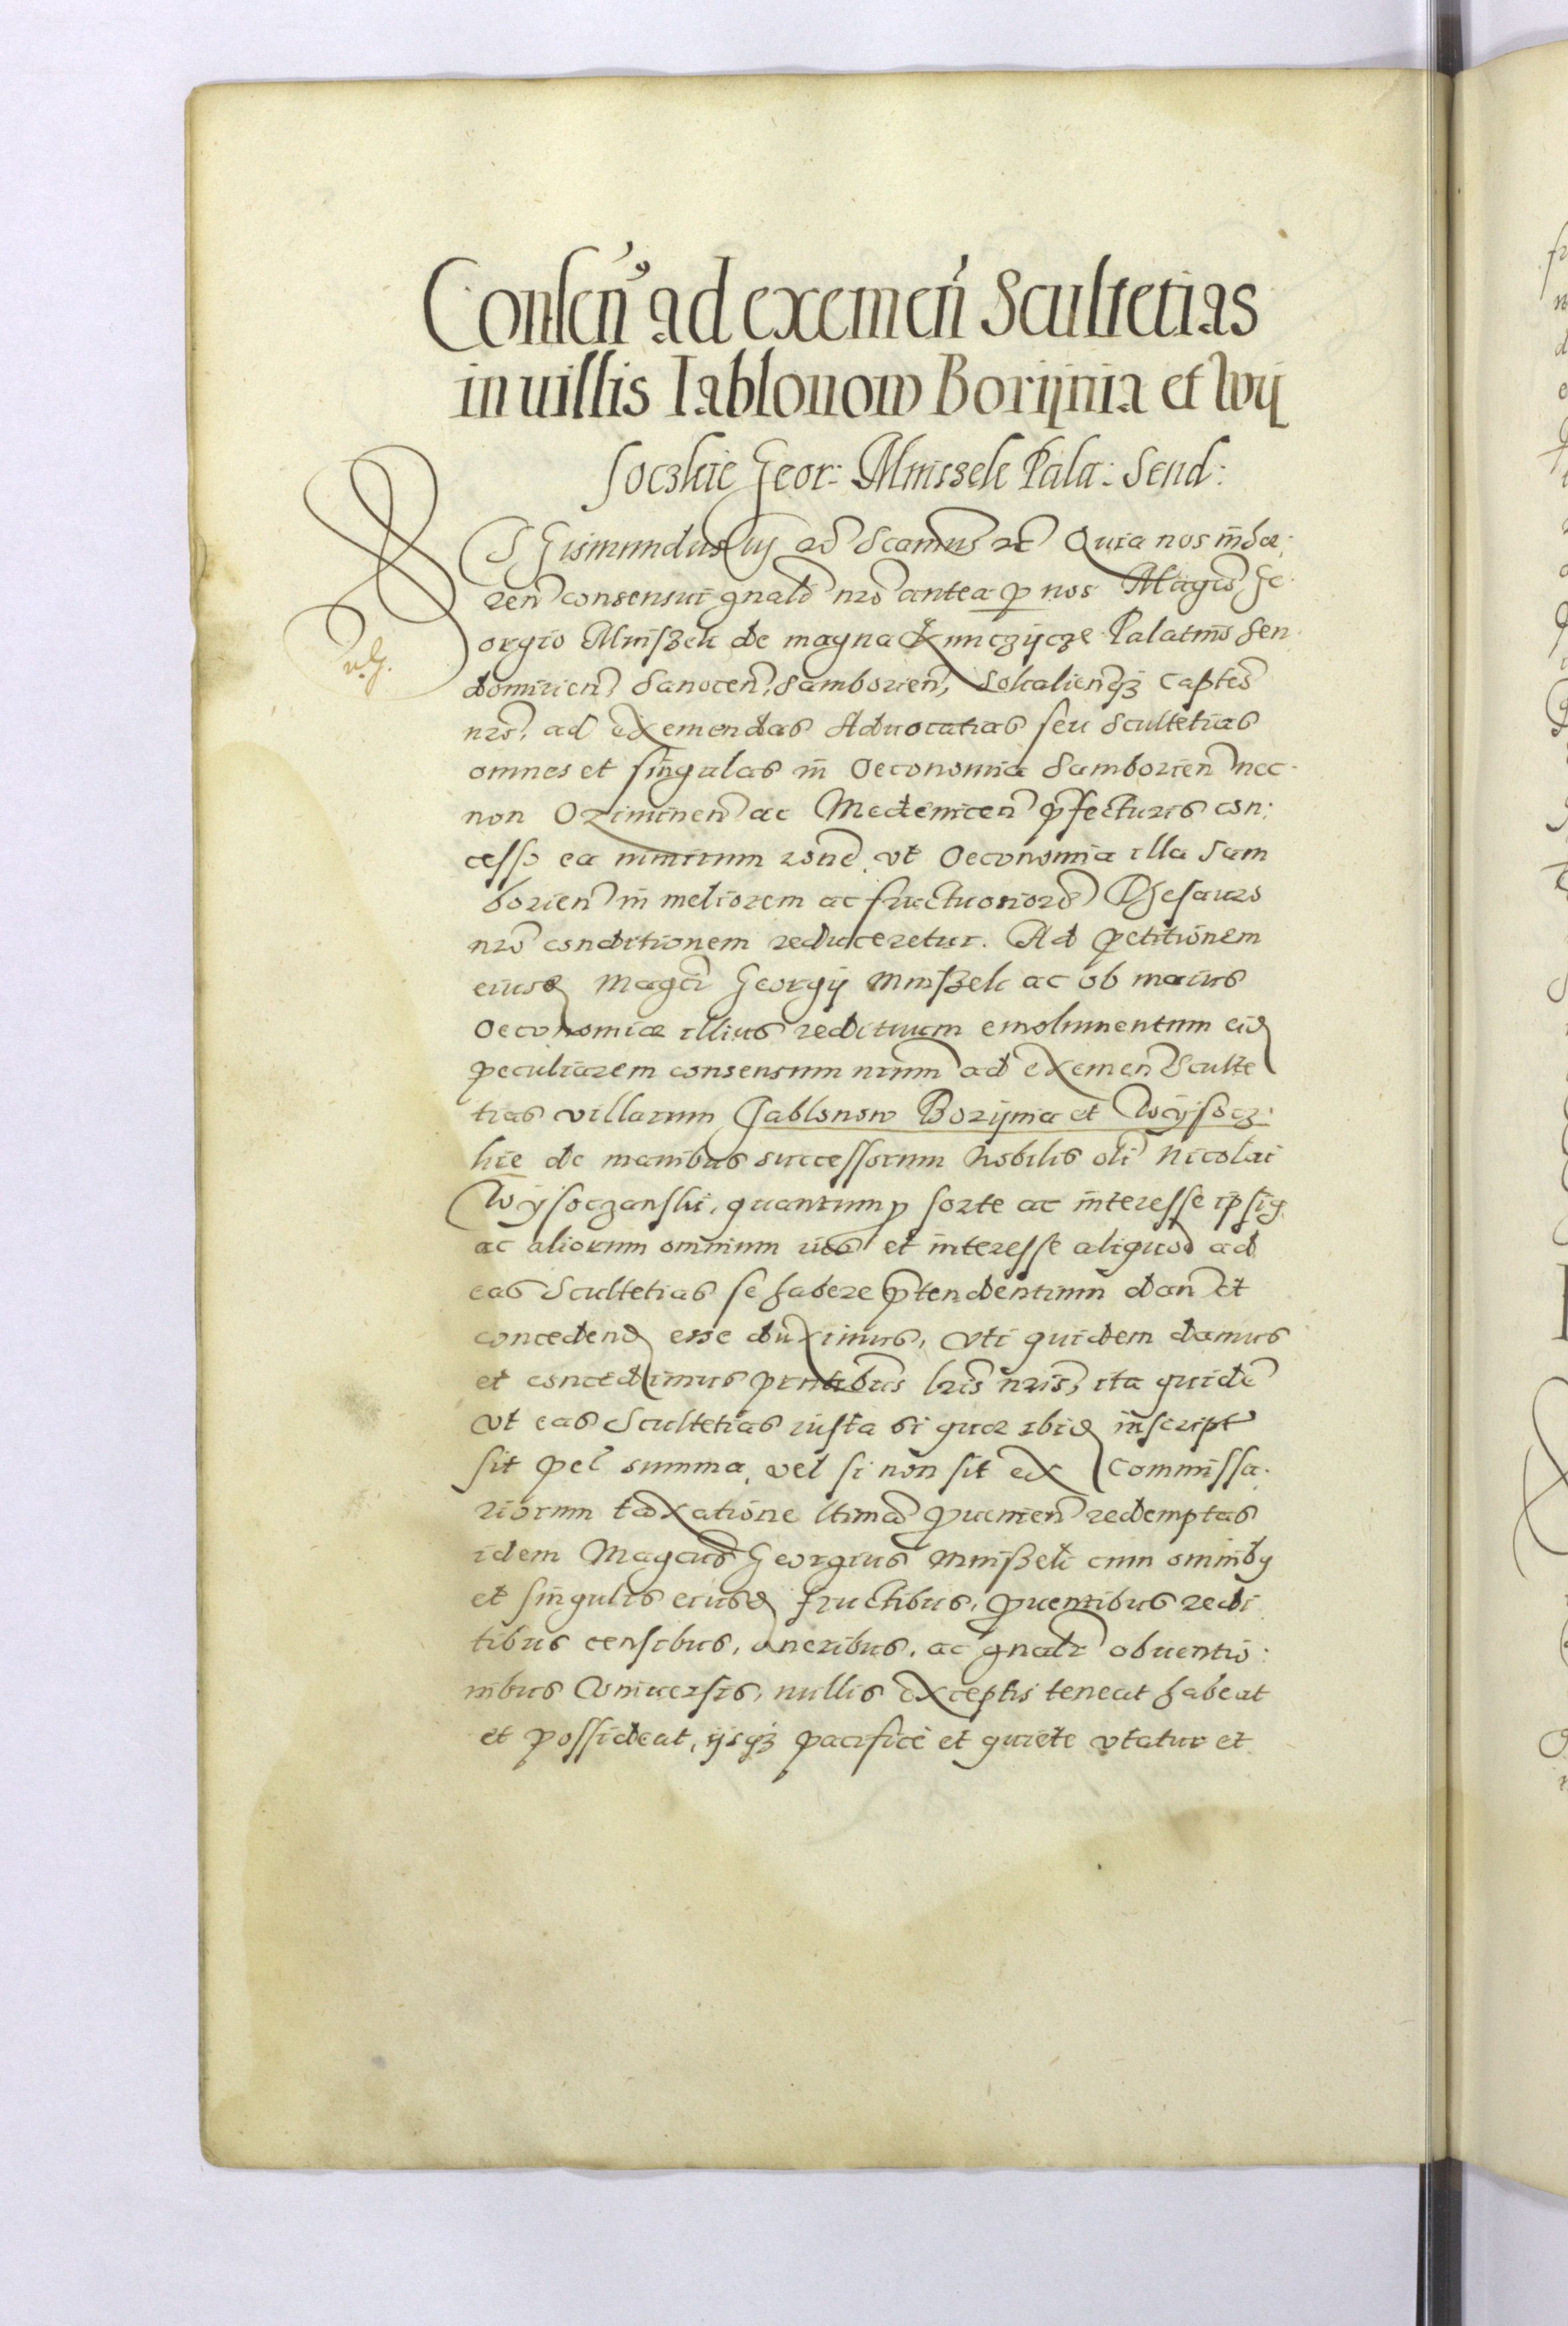 Consen⁹ ad exemen̄ Scultetias
in uillis Iablonow Borijnia et Wij
soczkie Geor: Mniszek Pala: Send:
SGismundus iij ad Scamus etc Quia nos inhæ:
ren̄ consensui gnāli nr̄o antea p nos Magco Ge
orgio Mniszek de magna Kunczijcze Palatino Sen
domirien̄, Sanocen̄, Samborien̄, Sokalienqȝ Captēo
nr̄o, ad exemendas Aduocatias seu Scultetias
omnes et singulas in Oeconomia Samborien̄ nec
non Oziminen̄ ac Medenicen̄ p̄fecturis con:
cesso ea nimirum rōne, vt Oeconomia illa Sam
borien̄ in meliorem ac fructuosiorē Thesauro
nr̄o conditionem reduceretur. Ad petitionem
eiusd Magci Georgij Mniszek ac ob maius
Oeconomiæ illius redituum emolumentum eid
peculiarem consensum nrum̄ ad exemen̄ Sculte
tias villarum Jablonow Borijnia et Wijsocz
kie de manibus successorum Nobilis oli Nicolai
Wijsoczanski, quantum p̄ sorte ac interesse ipsiq
ac aliorum omnium ius et interesse aliquod ad
eas Scultetias se habere p̄tendentium dan̄ et
concedend esse duximus, vti quidem damus
et concedimus pn̄tibus lr̄is nr̄is, ita quidē
vt eas Scultetias iusta si quæ ibid inscript
sit pel summa, vel si non sit ex Commissa:
riorum taxatione ltima puenien̄ redemptas
idem Magcus Georgius Mniszek cum omnibq
et singulis eiusd fructibus, puentibus redi
tibus censibus, oneribus, ac gnālr obuentio:
nibus vniuersis, nullis exceptis teneat habeat
et possideat, ijsqȝ pacifice et quiete vtatur et